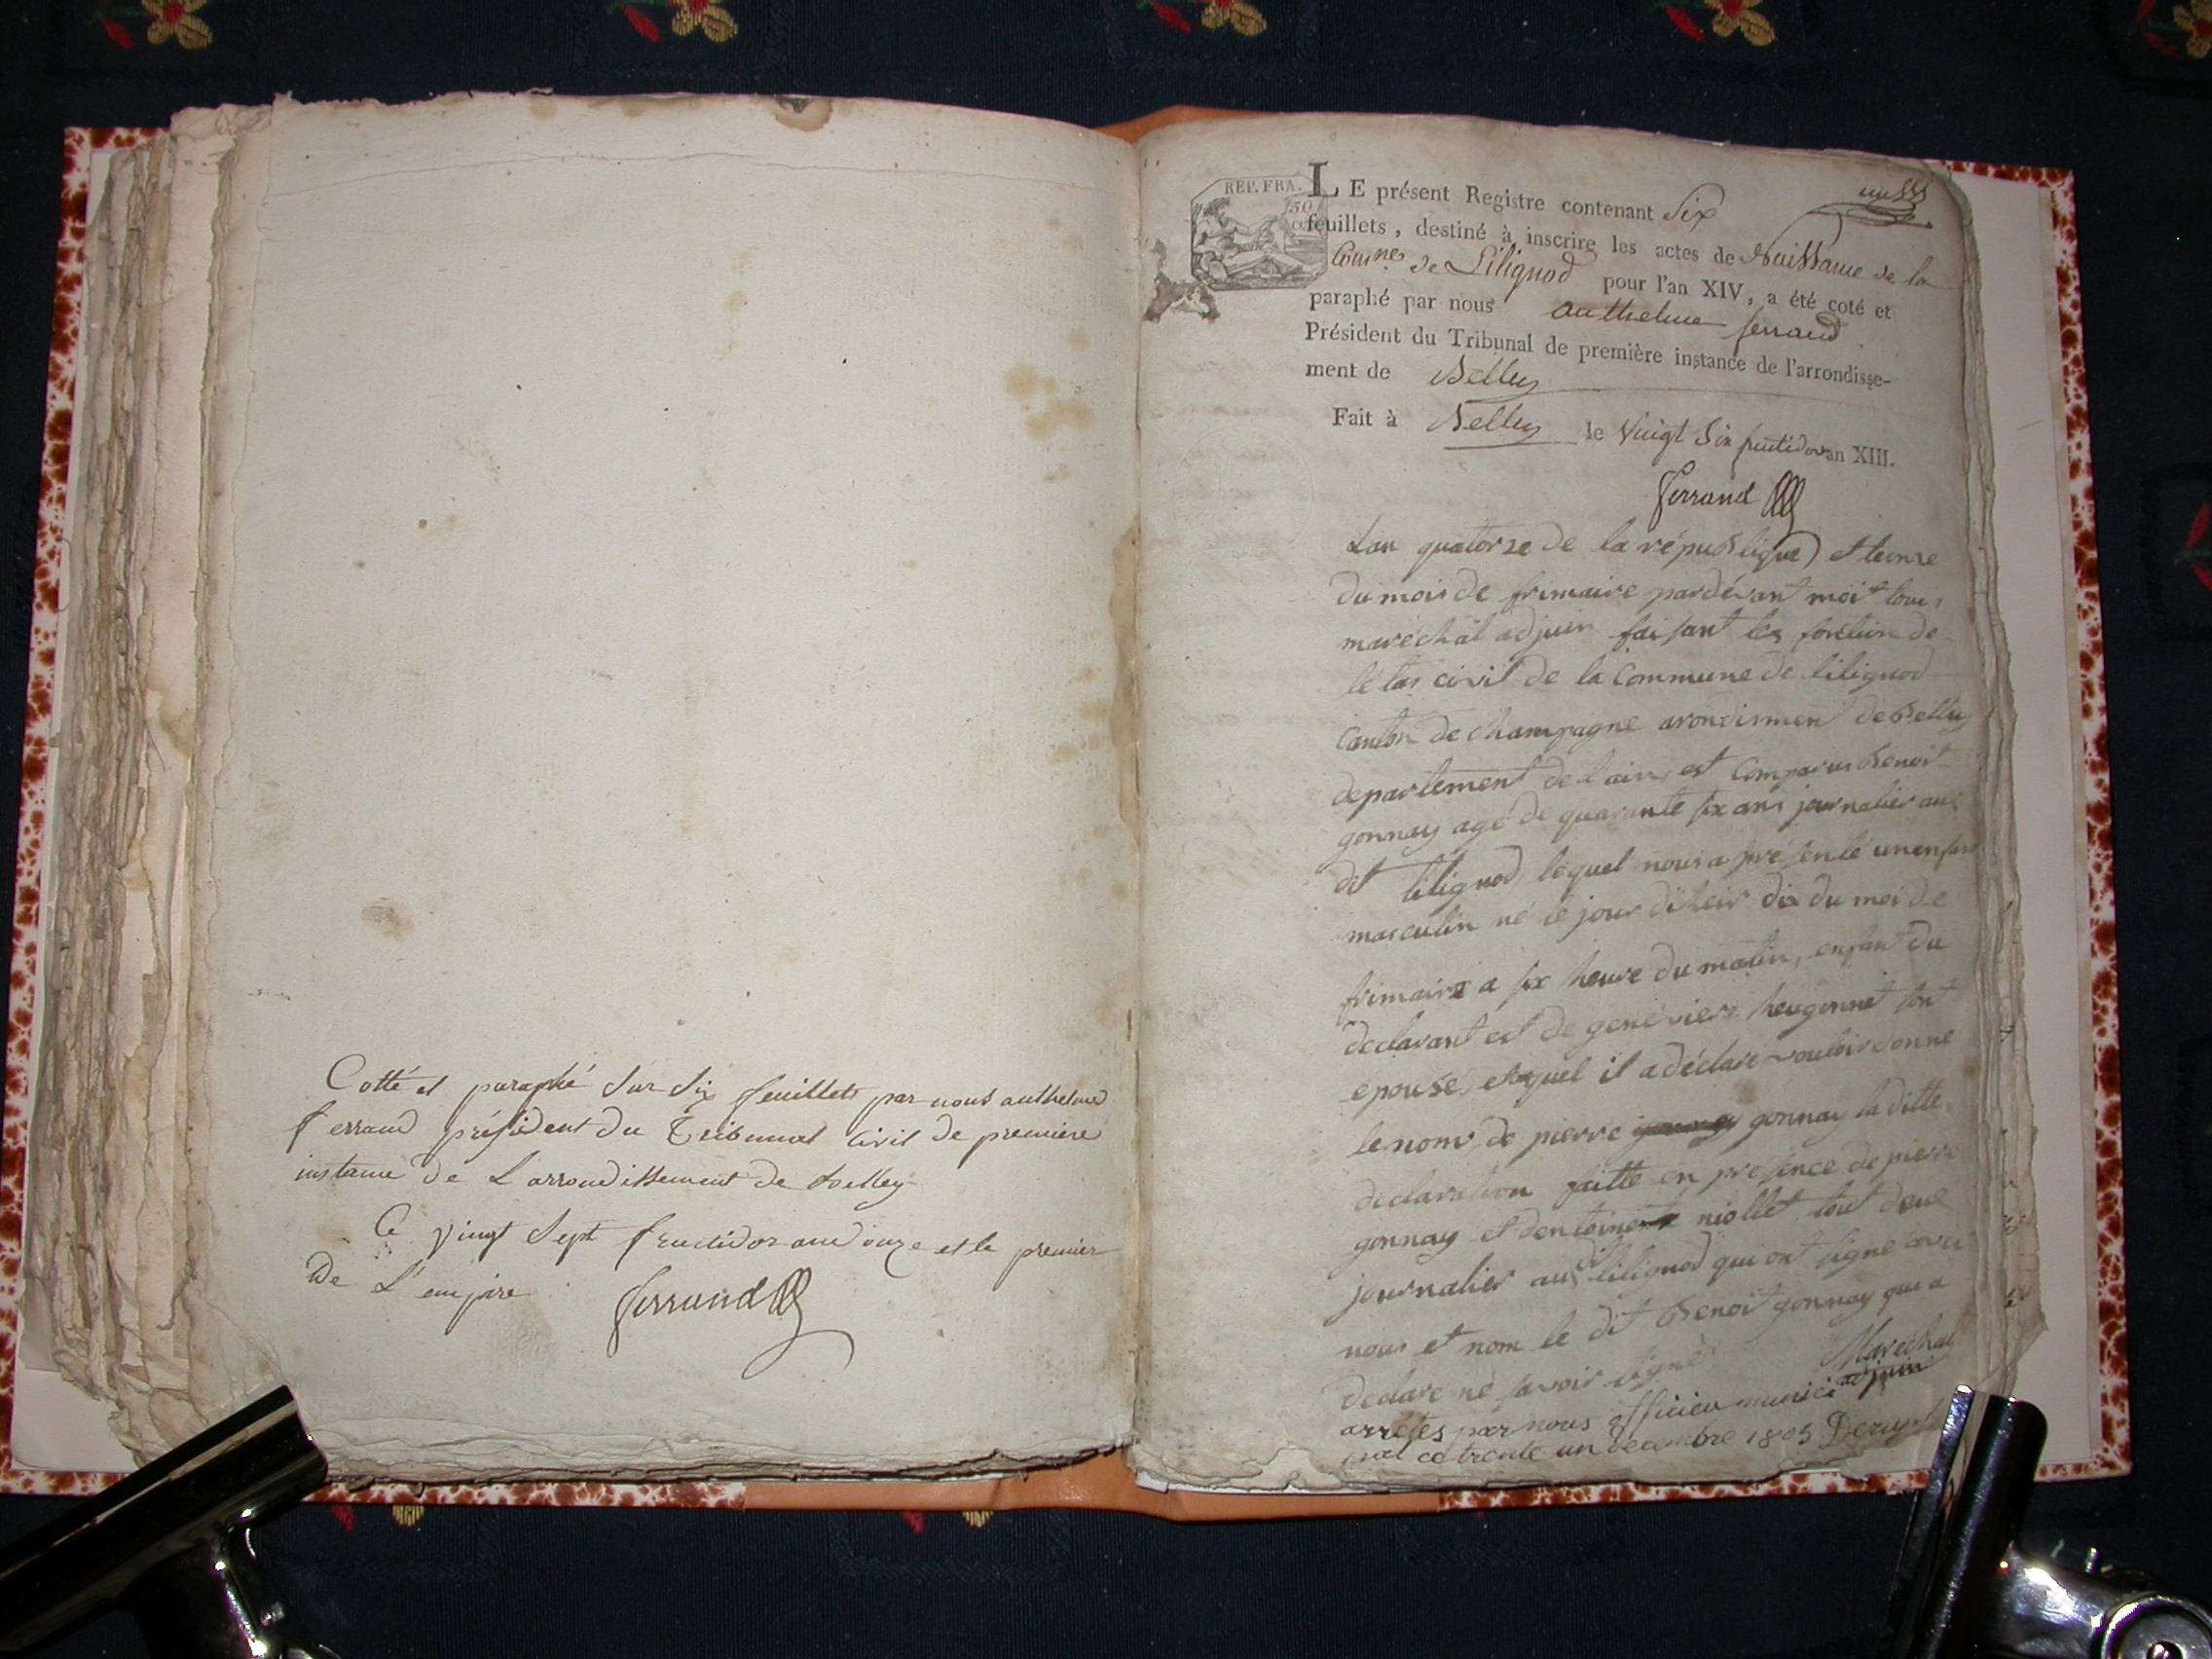 Cotté et paraphé sur Six feuillets par nous anthelme
ferrand président du Tribunal Civil de premiere
instance De L'arrondissement de Belley
Ce vingt Sept fructidor an douze et le premier
De L'empire
ferrand
REP. FRA.
50
LE présent Registre contenant Six
feuillets, destiné à inscrire les actes de Naissance de la
Comne de Lilignod pour l'an XIV, a été coté et
paraphé par nous anthelme ferrand
Président du Tribunal de première instance de l'arrondisse-
ment de Belley
Fait à Belley le Vingt Six fructidor an XIII.
ferrand
Lan quatorze de la république et leonze
du mois de frimaire pardévant moit loui
maréchal adjuin faisant les fonction de
letas civil de la Commune de lilignod
canton de champagne arondismen de Belley
departement de l'ain, est Comparus Benoit
gonnay agé de quarante six ans journalier au
dit lilignod lequel nous a présenlé un enfant
masculin né le jour diheir dix du moi de
frimaire a six heure du matin, enfant du
declarant et de genevieve heugonnet son
epouse, etquel il a déclaré vouloir donne
le nom, de pierre gonnay la ditte
declaration faitte en presence de pierre
gonnay et dentoine niollet tout deue
journalier au dit lilignod qui ont signe avec
nous et nom le dit Benoit gonnay qui a
declare ne savoir signé
Marechal
adjuin
arretés par nous officier munici
pal ce trente un decembre 1805